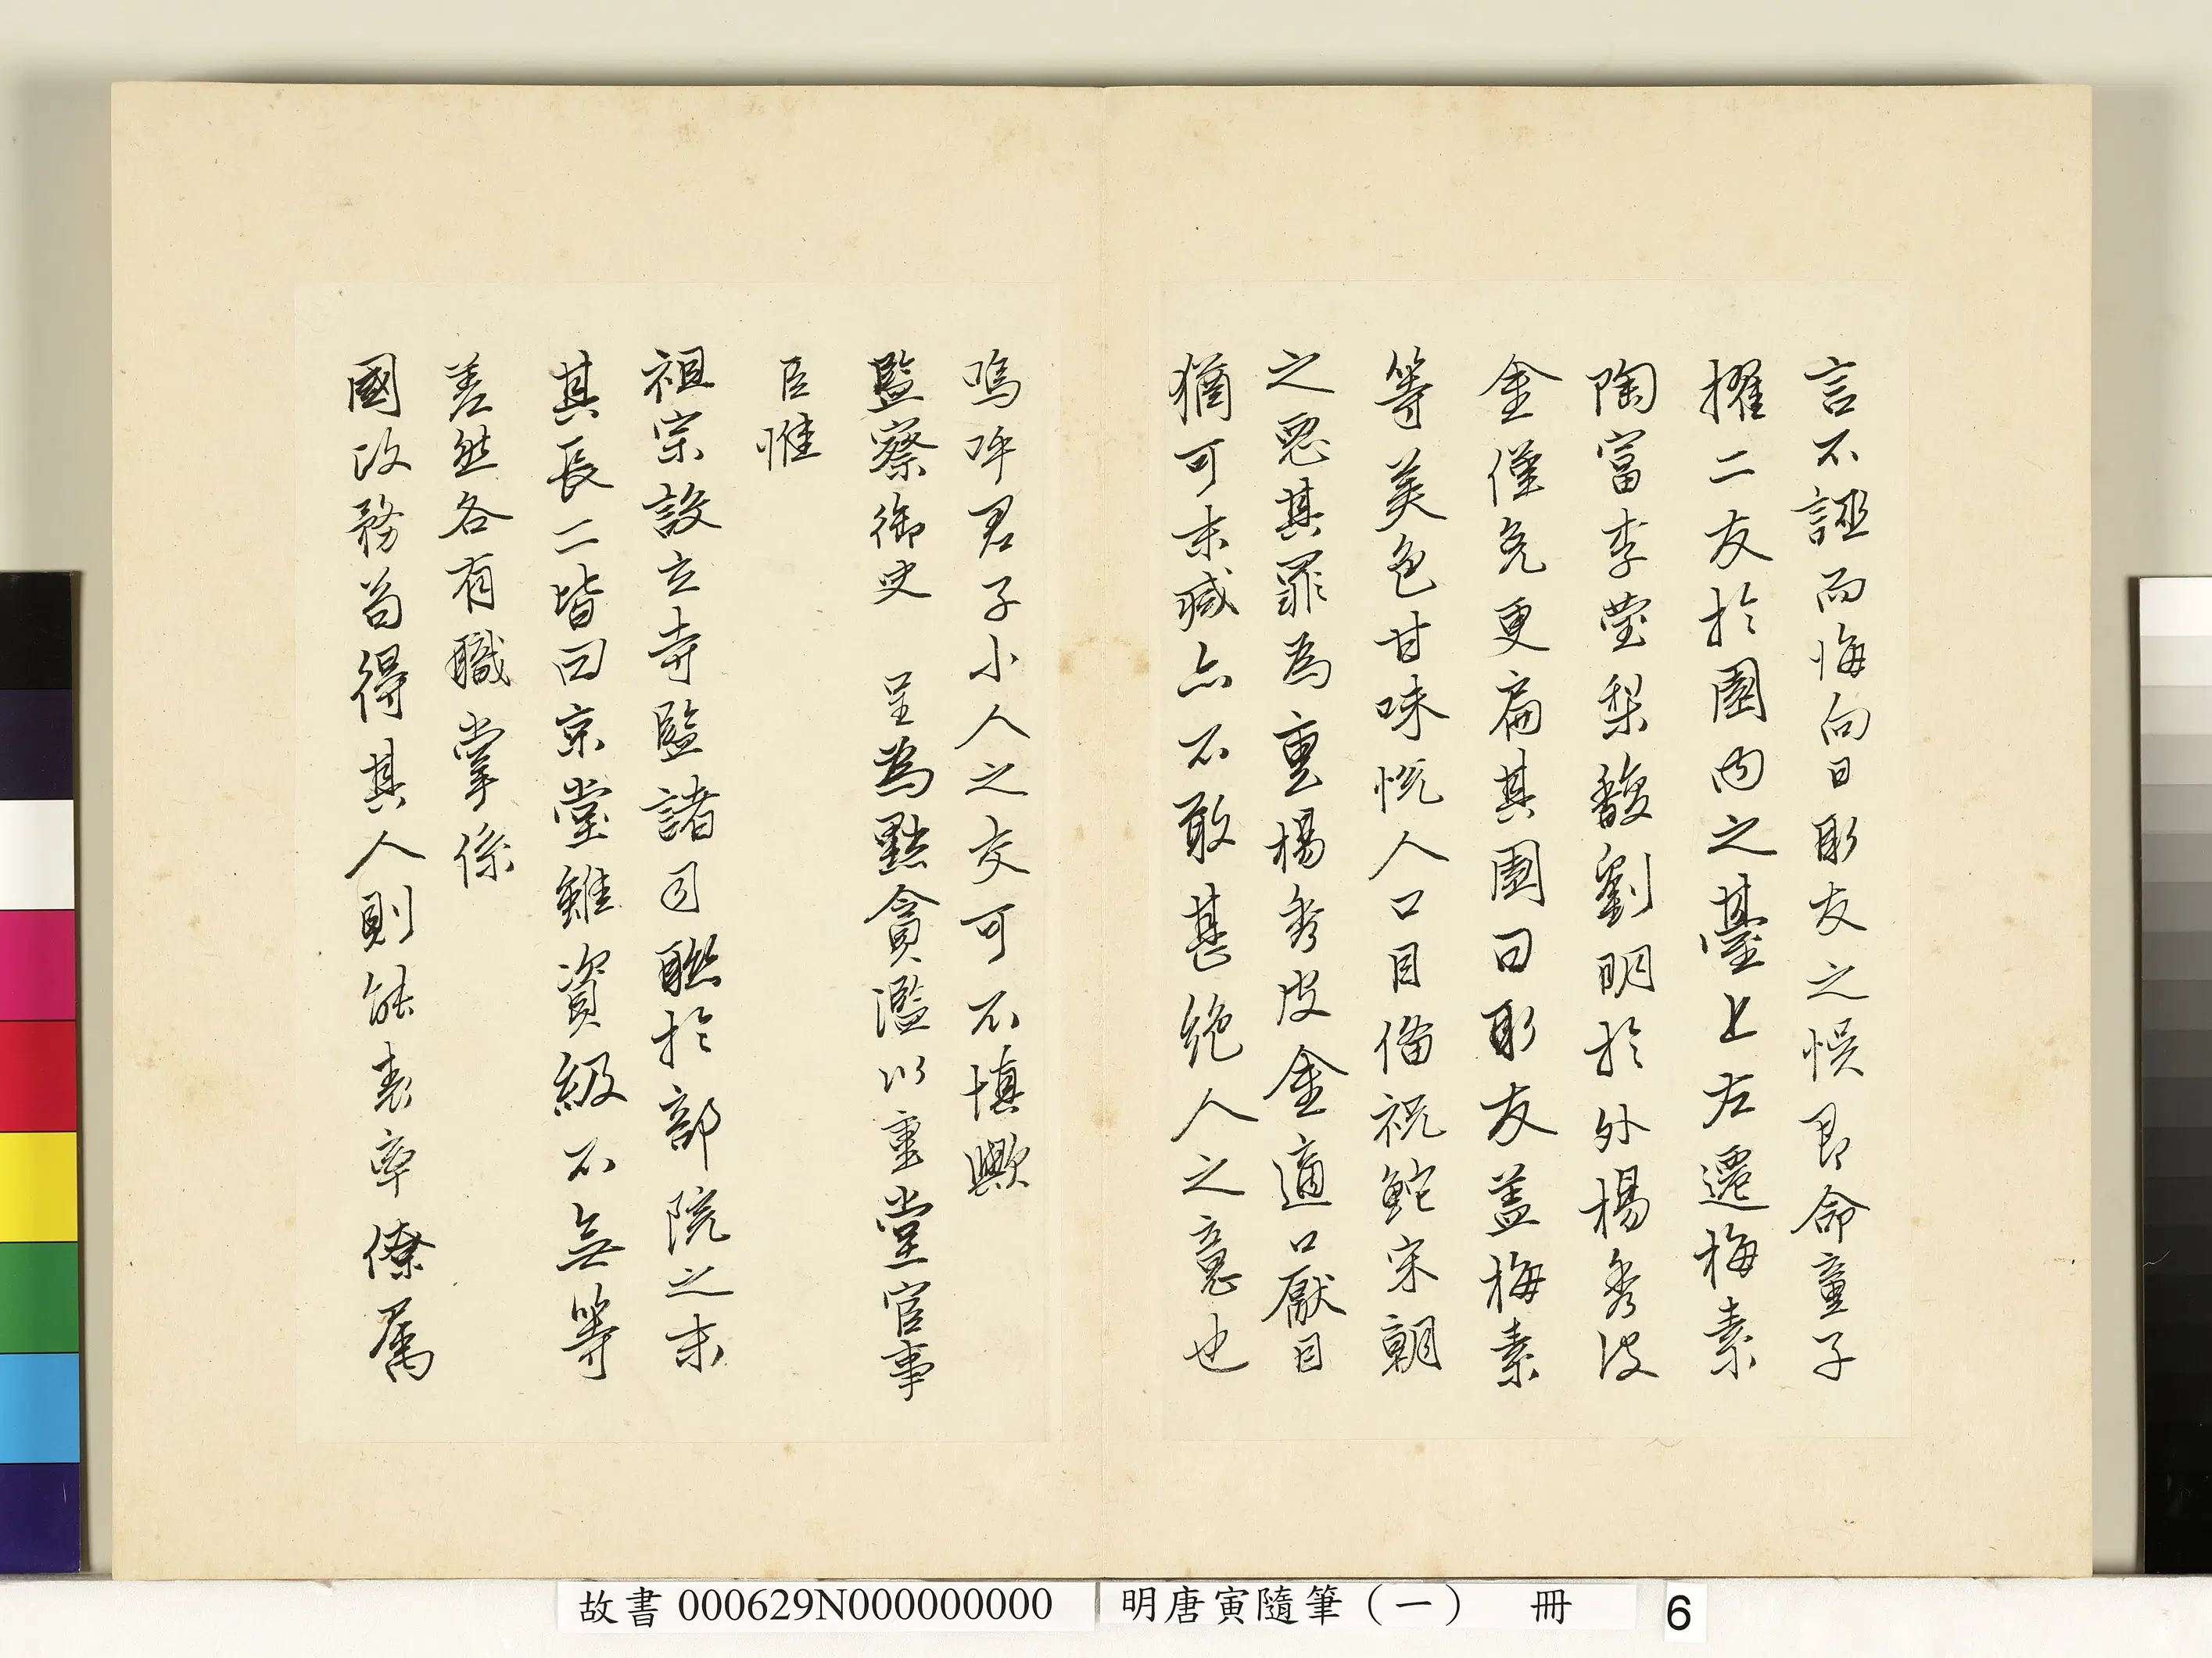 言不誣而悔向日彫友之悞即命童子
擢二友於園内之臺上左遷梅素
陶富李瑩梨馥劉明於外楊秀皮
金僅免更扁其園曰彫友蓋梅素
等美色甘味悅人口目俻祝鮀宋朝
之惡其罪為重楊秀皮金適口厭目
猶可末減亦不敢甚絶人之意也
嗚呼君子小人之交可不慎歟
監察御史 呈為黜貪濫以重堂官事
臣惟
祖宗設立寺監諸司聯於部院之末
其長二皆曰京堂雖資級不無等
差然各有職掌係
國政務苟得其人則能表率僚属
故書 000629N000000000
明唐寅隨筆（一） 冊
6